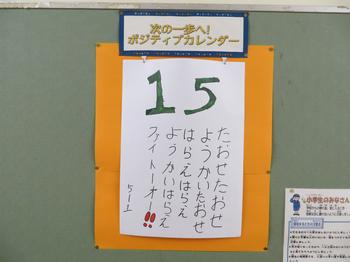 次の一歩へ!
ポジティブカレンダー
15
たおせたおせ
ようかいたおせ
はらえはらえ
ようかいはらえ
ファイトーオー!!
5-1
小学生のみなさん